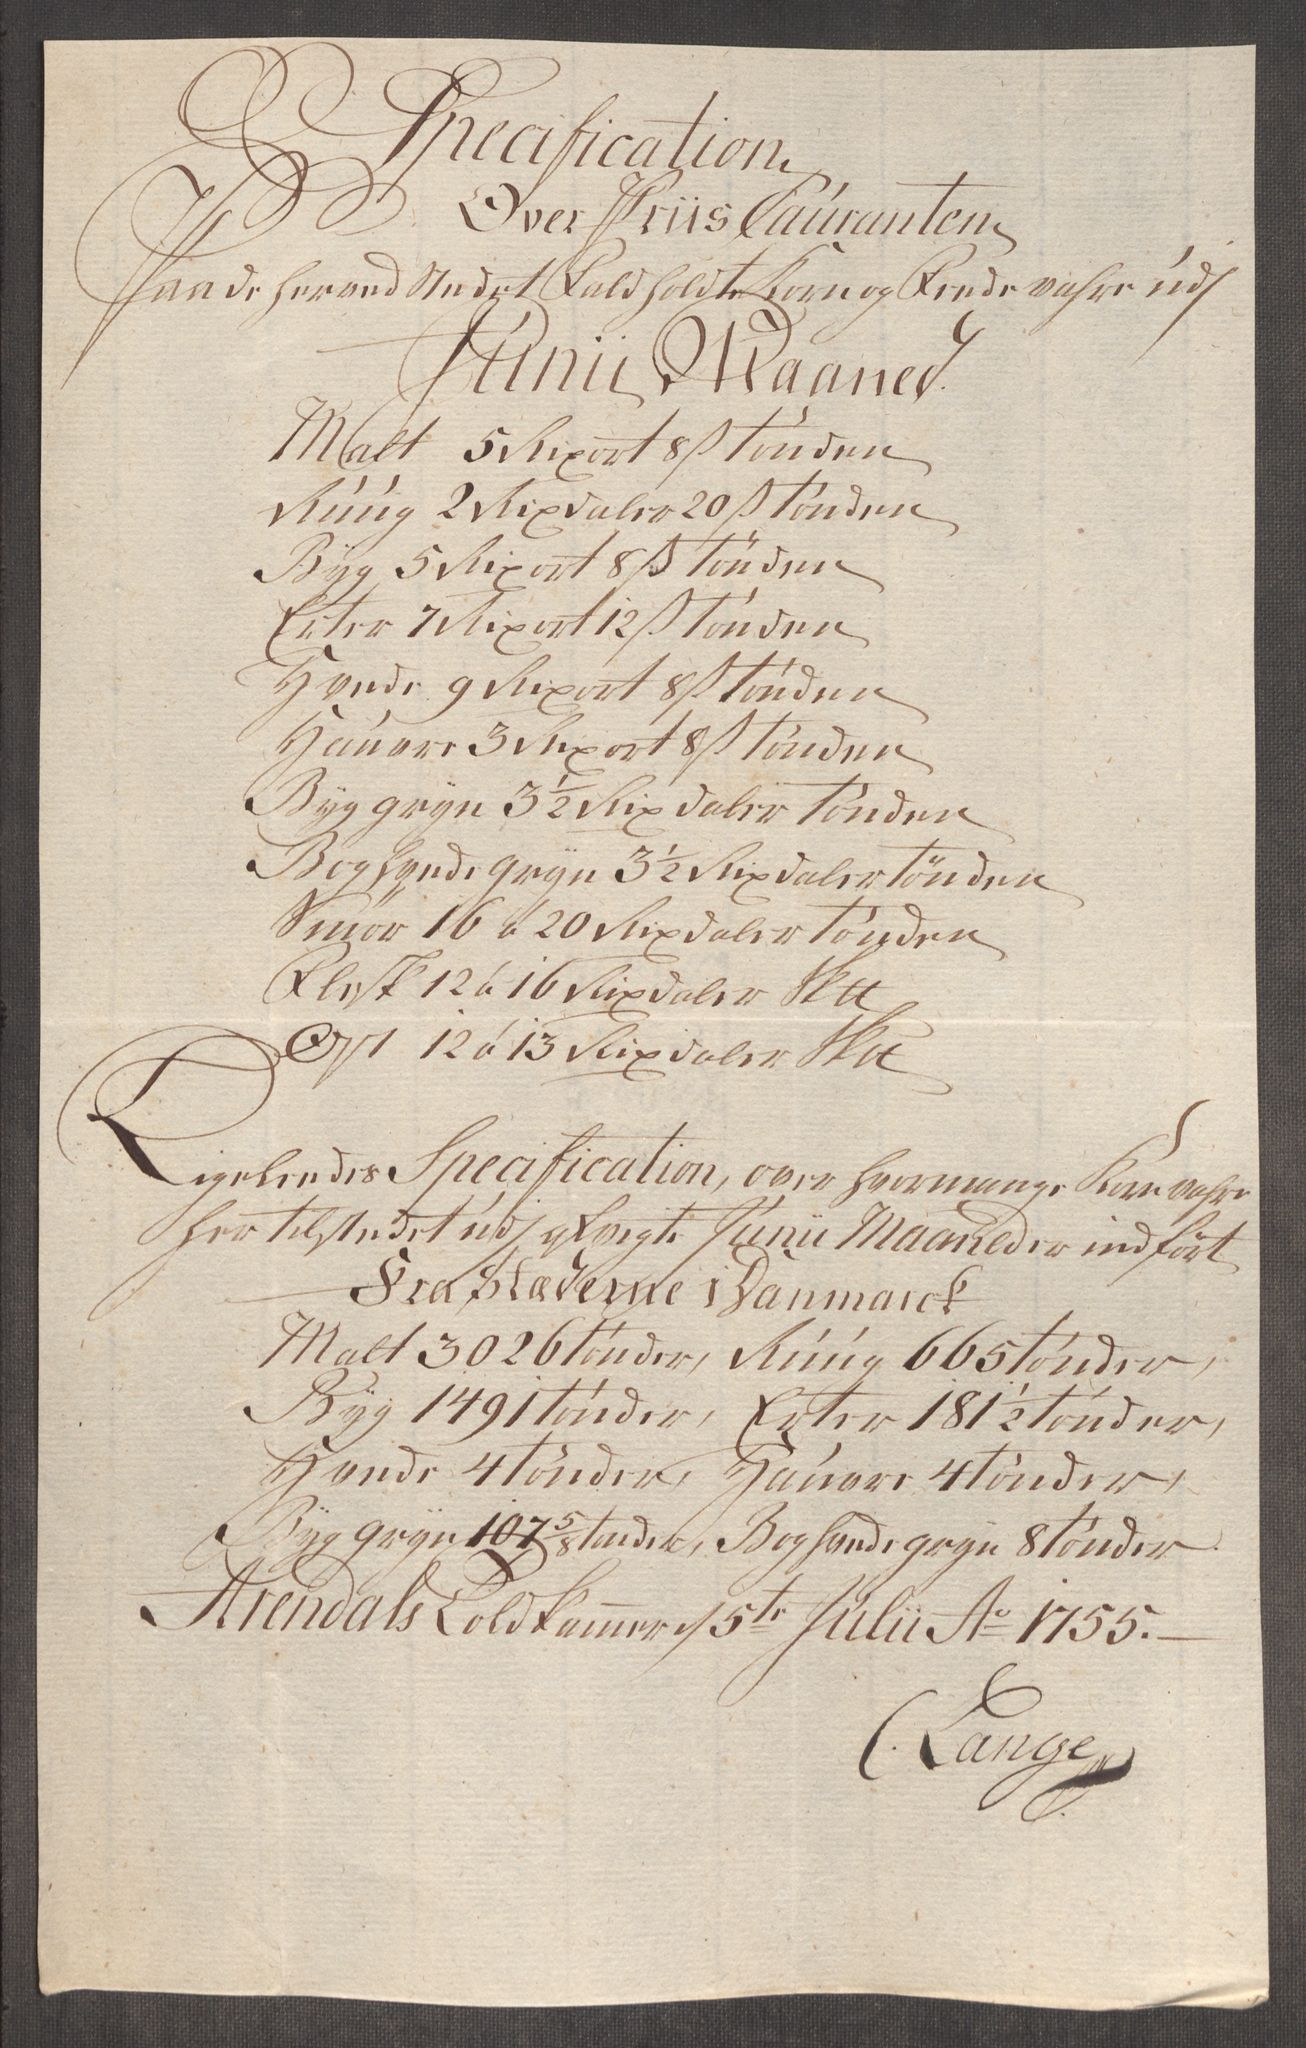 Specification
Over Priis Cauranten
Paa de her ved Stedet Fald holdte Korn og Feede vahre udj
Junii Maaned
Malt 5 Rixort 8 ß tönden
Rúúg 2 Rixdaler 20 ß tönden
Bÿg 5 Rixort 8 ß tönden
Erter 7 Rixort 12 ß tönden
Hvede 9 Rixort 8 ß tönden
Haúvre 3 Rixort 8 ß tönden
Bÿg grÿn 3 1/2 Rixdaler tönden
Boghvede grÿn 3 1/2 Rixdaler tönden
Smör 16 á 20 Rixdaler tönden
Flesk 12 á 16 Rixdaler Sk℔
Ost 12 á 13 Rixdaler Sk℔
Ligeleedes Specification, over hvormange Korn vahre
her til Stedet udj afvigte Junii Maaneder indfört
Fra Stæderne i Danmarck
Malt 3026 tönder, Rúúg 665 tönder,
Bÿg 1491 tönder, Erter 181 1/2 tönder,
Hvede 4 tönder, Haúvre 4 tönder,
Bÿg grÿn 107 5/8 tönder, Boghvede grÿn 8 tönder
Arendals Toldkammer d 5te Julii Ao 1755.
C. Lange